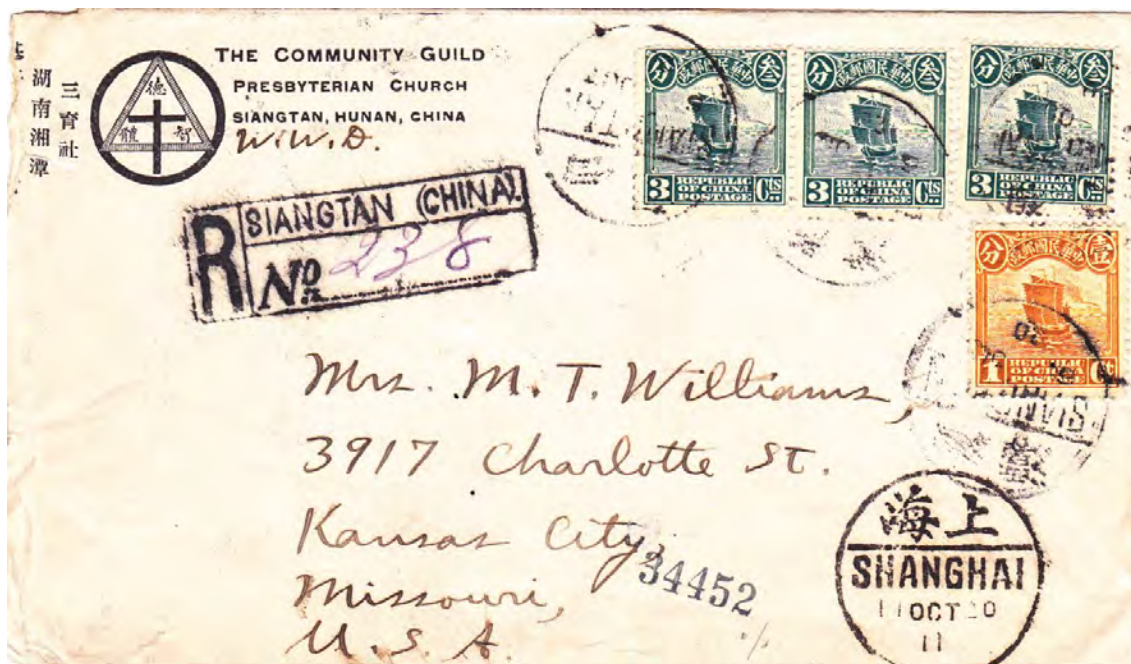 三育社
湖南湘潭
德
體 智
THE COMMUNITY GUILD
PRESBYTERIAN CHURCH
SIANGTAN, HUNAN, CHINA
W.W.D.
R SIANGTAN (CHINA).
No 238
中華民國郵政
分 叁
3 REPUBLIC OF CHINA POSTAGE 3 Cts
中華民國郵政
分 叁
3 REPUBLIC OF CHINA POSTAGE Cts
中華民國郵政
分 叁
3 REPUBLIC OF CHINA POSTAGE Cts
中華民國郵政
分 壹
1 REPUBLIC OF CHINA POSTAGE Ct
Mrs. M. T. Williams,
3917 Charlotte St.
Kansas City,
Missouri,
U. S. A.
34452
海上
SHANGHAI
11 OCT 20
11